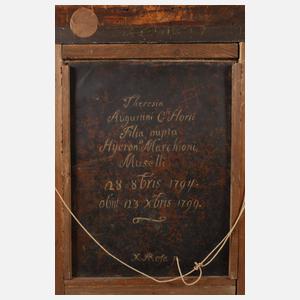 Theresia
Augustini C.ᵗⁱˢ Florii
Filia nupta
Hyeron.º Marchioni
Muselli
28 8bris 1794.
obiit 123 Xbris 1799.
X Rosa p